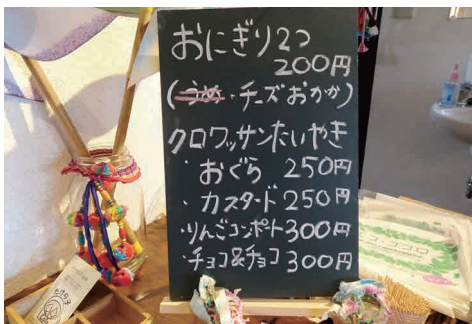 おにぎり2つ
200円
(うめ・チーズおかか)
クロワッサンたいやき
・おぐら 250円
・カスタード 250円
・りんごコンポート 300円
・チョコ&チョコ 300円